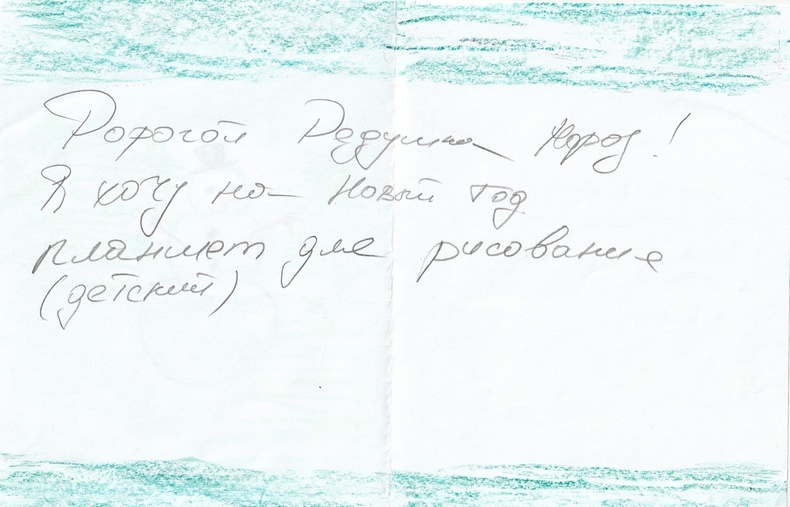 Дорогой Дедушка Мороз!
Я хочу на Новый год
планшет для рисования
(детский)